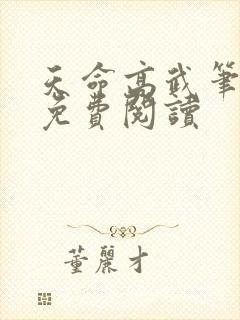 天命高武筆
免費閱讀
董麗才